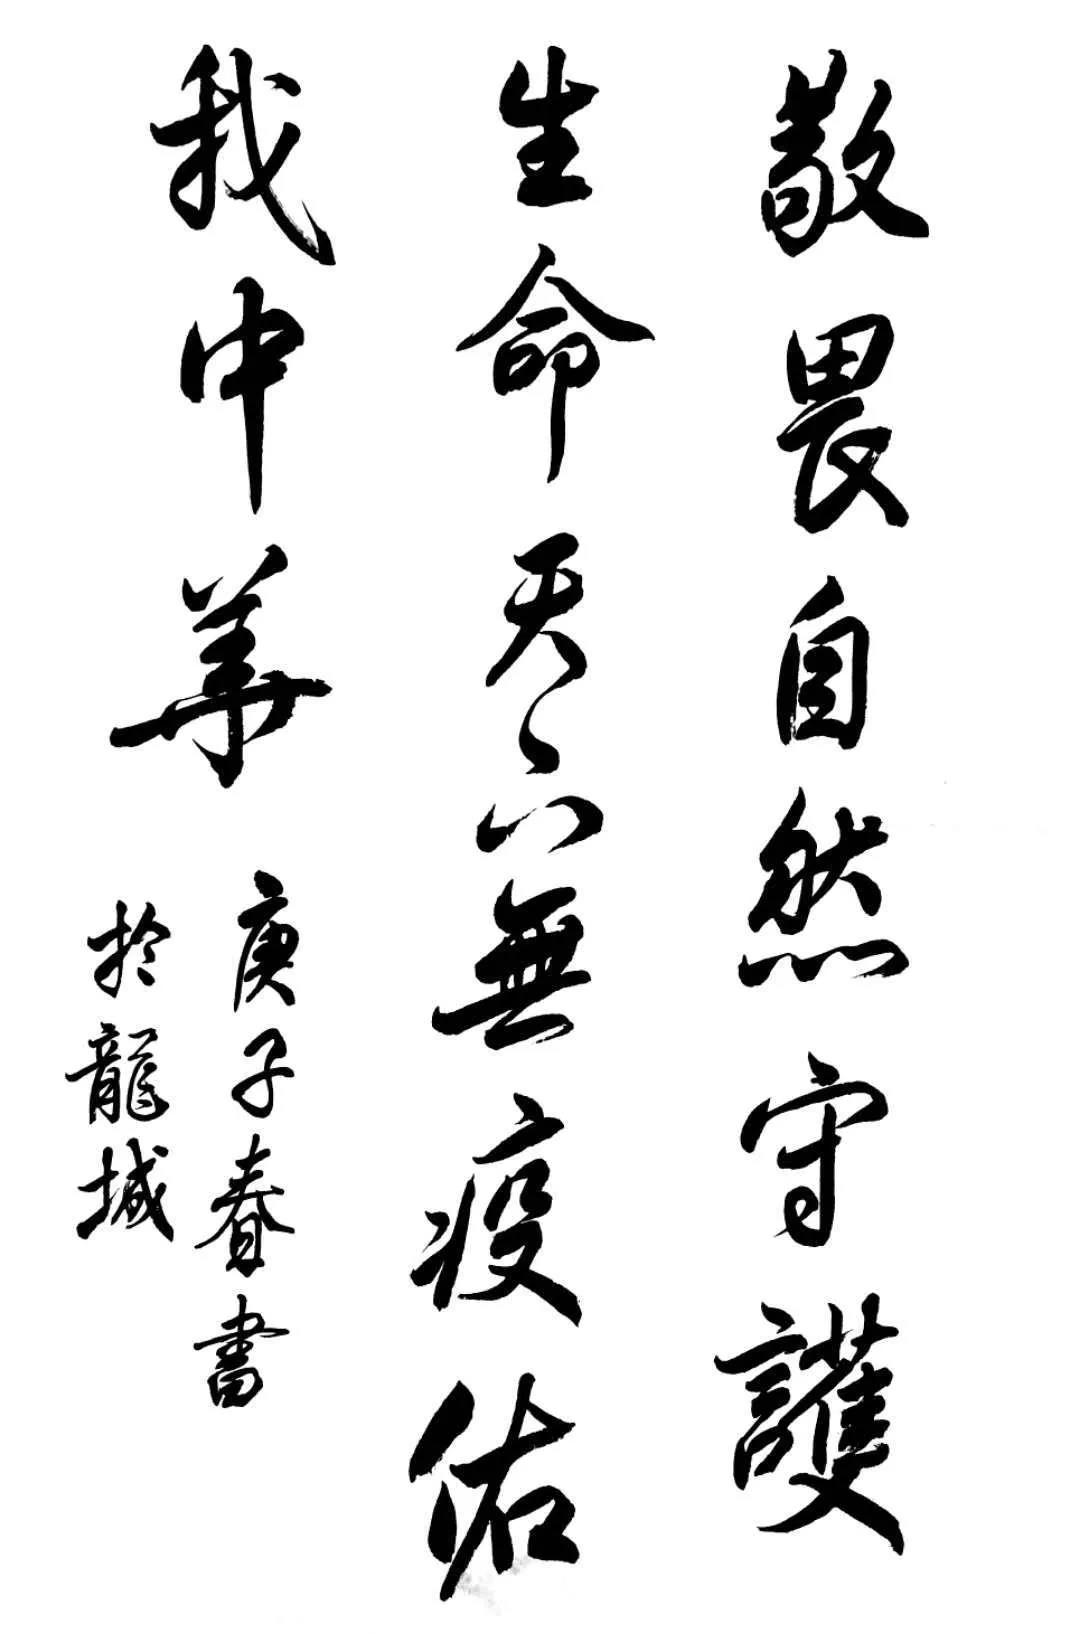 敬畏自然守護
生命天下無疫佑
我中華
庚子春書
於龍城